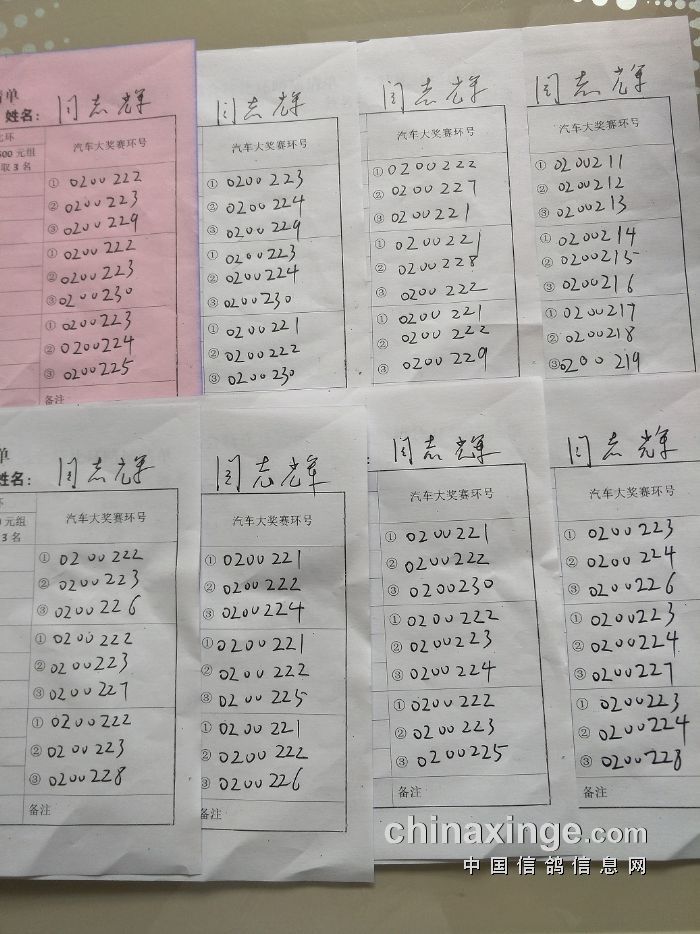 清单
姓名: 闫志辉
比环
500 元组
取 3 名
汽车大奖赛环号
① 0200222
② 0200223
③ 0200229
① 0200222
② 0200223
③ 0200230
① 0200223
② 0200224
③ 0200225
备注
闫志辉
汽车大奖赛环号
① 0200223
② 0200224
③ 0200229
① 0200223
② 0200224
③ 0200230
① 0200221
② 0200222
③ 0200230
闫志辉
汽车大奖赛环号
① 0200222
② 0200227
③ 0200221
① 0200221
② 0200228
③ 0200222
① 0200221
② 0200222
③ 0200229
闫志辉
汽车大奖赛环号
① 0200211
② 0200212
③ 0200213
① 0200214
② 0200215
③ 0200216
① 0200217
② 0200218
③ 0200219
单
姓名: 闫志辉
环
元组
3 名
汽车大奖赛环号
① 0200222
② 0200223
③ 0200226
① 0200222
② 0200223
③ 0200227
① 0200222
② 0200223
③ 0200228
备注
闫志辉
汽车大奖赛环号
① 0200221
② 0200222
③ 0200224
① 0200221
② 0200222
③ 0200225
① 0200221
② 0200222
③ 0200226
备注
闫志辉
汽车大奖赛环号
① 0200221
② 0200222
③ 0200230
① 0200222
② 0200223
③ 0200224
① 0200222
② 0200223
③ 0200225
备注
闫志辉
汽车大奖赛环号
① 0200223
② 0200224
③ 0200226
① 0200223
② 0200224
③ 0200227
① 0200223
② 0200224
③ 0200228
备注
chinaxinge.com
中国信鸽信息网